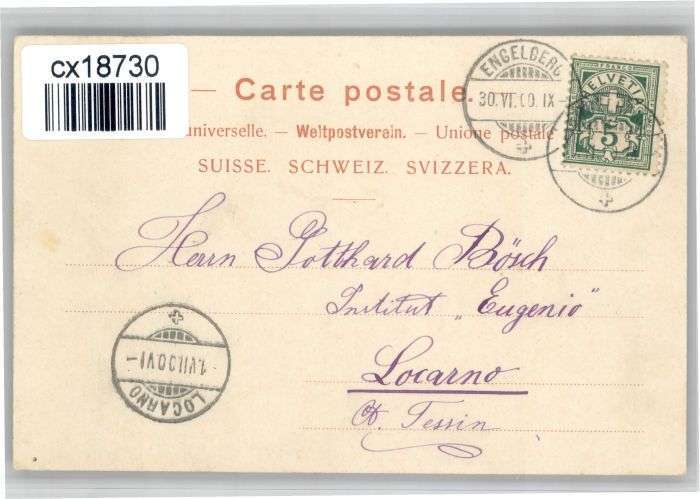 cx18730
Carte postale.
universelle. — Weltpostverein. — Unione postale
SUISSE. SCHWEIZ. SVIZZERA.
ENGELBERG
30.VI.00.IX
FRANCO
HELVETIA
5
Herrn Gotthard Bösch
Institut „Eugenio"
Locarno
Ct. Tessin
1.VII.00.VI
LOCARNO